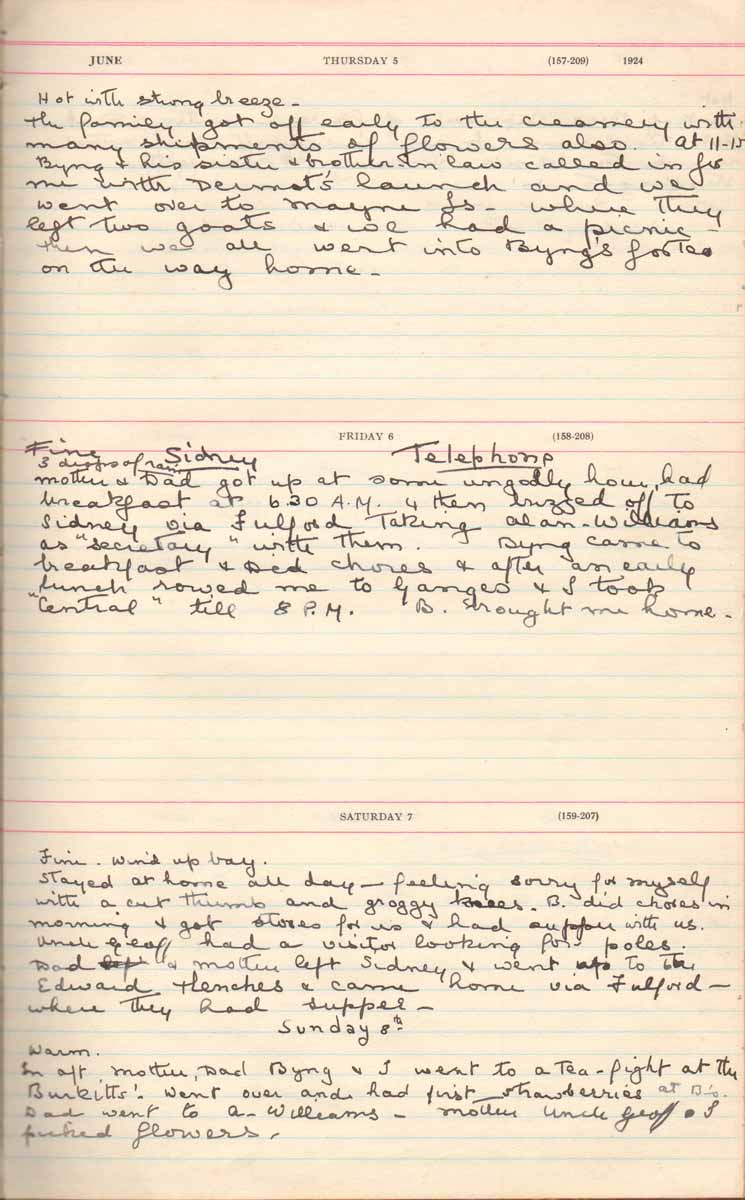 JUNE THURSDAY 5 (157-209) 1924
Hot with strong breeze -
The family got off early to the creamery with
many shipments of flowers also. at 11-15
Byng & his sister & brother-in-law called in for
me with Dermot's launch and we
went over to Mayne Is - where they
left two goats & we had a picnic -
then we all went into Byng's for Tea
on the way home -
FRIDAY 6 (158-208)
Fine Sidney Telephone
3 drops of rain
Mother & Dad got up at some ungodly hour, had
breakfast at 6.30 A.M. & then buzzed off to
Sidney via Fulford Taking Alan-Williams
as "secretary" with them. Byng came to
breakfast & Did chores & after an early
lunch rowed me to Ganges & I took
"Central" till 8 P.M. B. brought me home -
SATURDAY 7 (159-207)
Fine. Wind up bay.
Stayed at home all day - feeling sorry for myself
with a cut thumb and groggy knees. B. did chores in
morning & got stores for us & had supper with us.
Uncle Geoff had a visitor looking for poles.
Dad left & mother left Sidney & went up to the
Edward & came home via Fulford -
where they had supper -
Sunday 8th
Warm.
In aft, mother, Dad Byng & I went to a Tea-fight at the
Burkitts'. Went over and had first strawberries at B's.
Dad went to A-Williams - Mother Uncle Geoff & I
picked flowers -